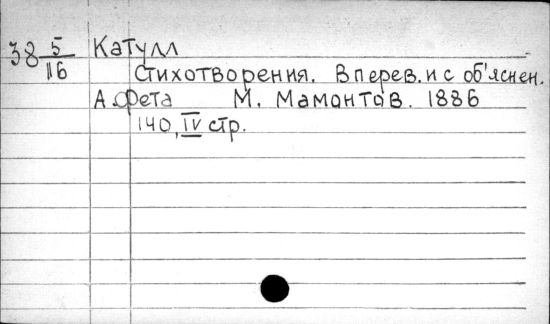 38 5/116 Катулл
Стихотворения. В перев. и с об'яснен.
А. Фета М. Мамонтов. 1886
140, IV стр.